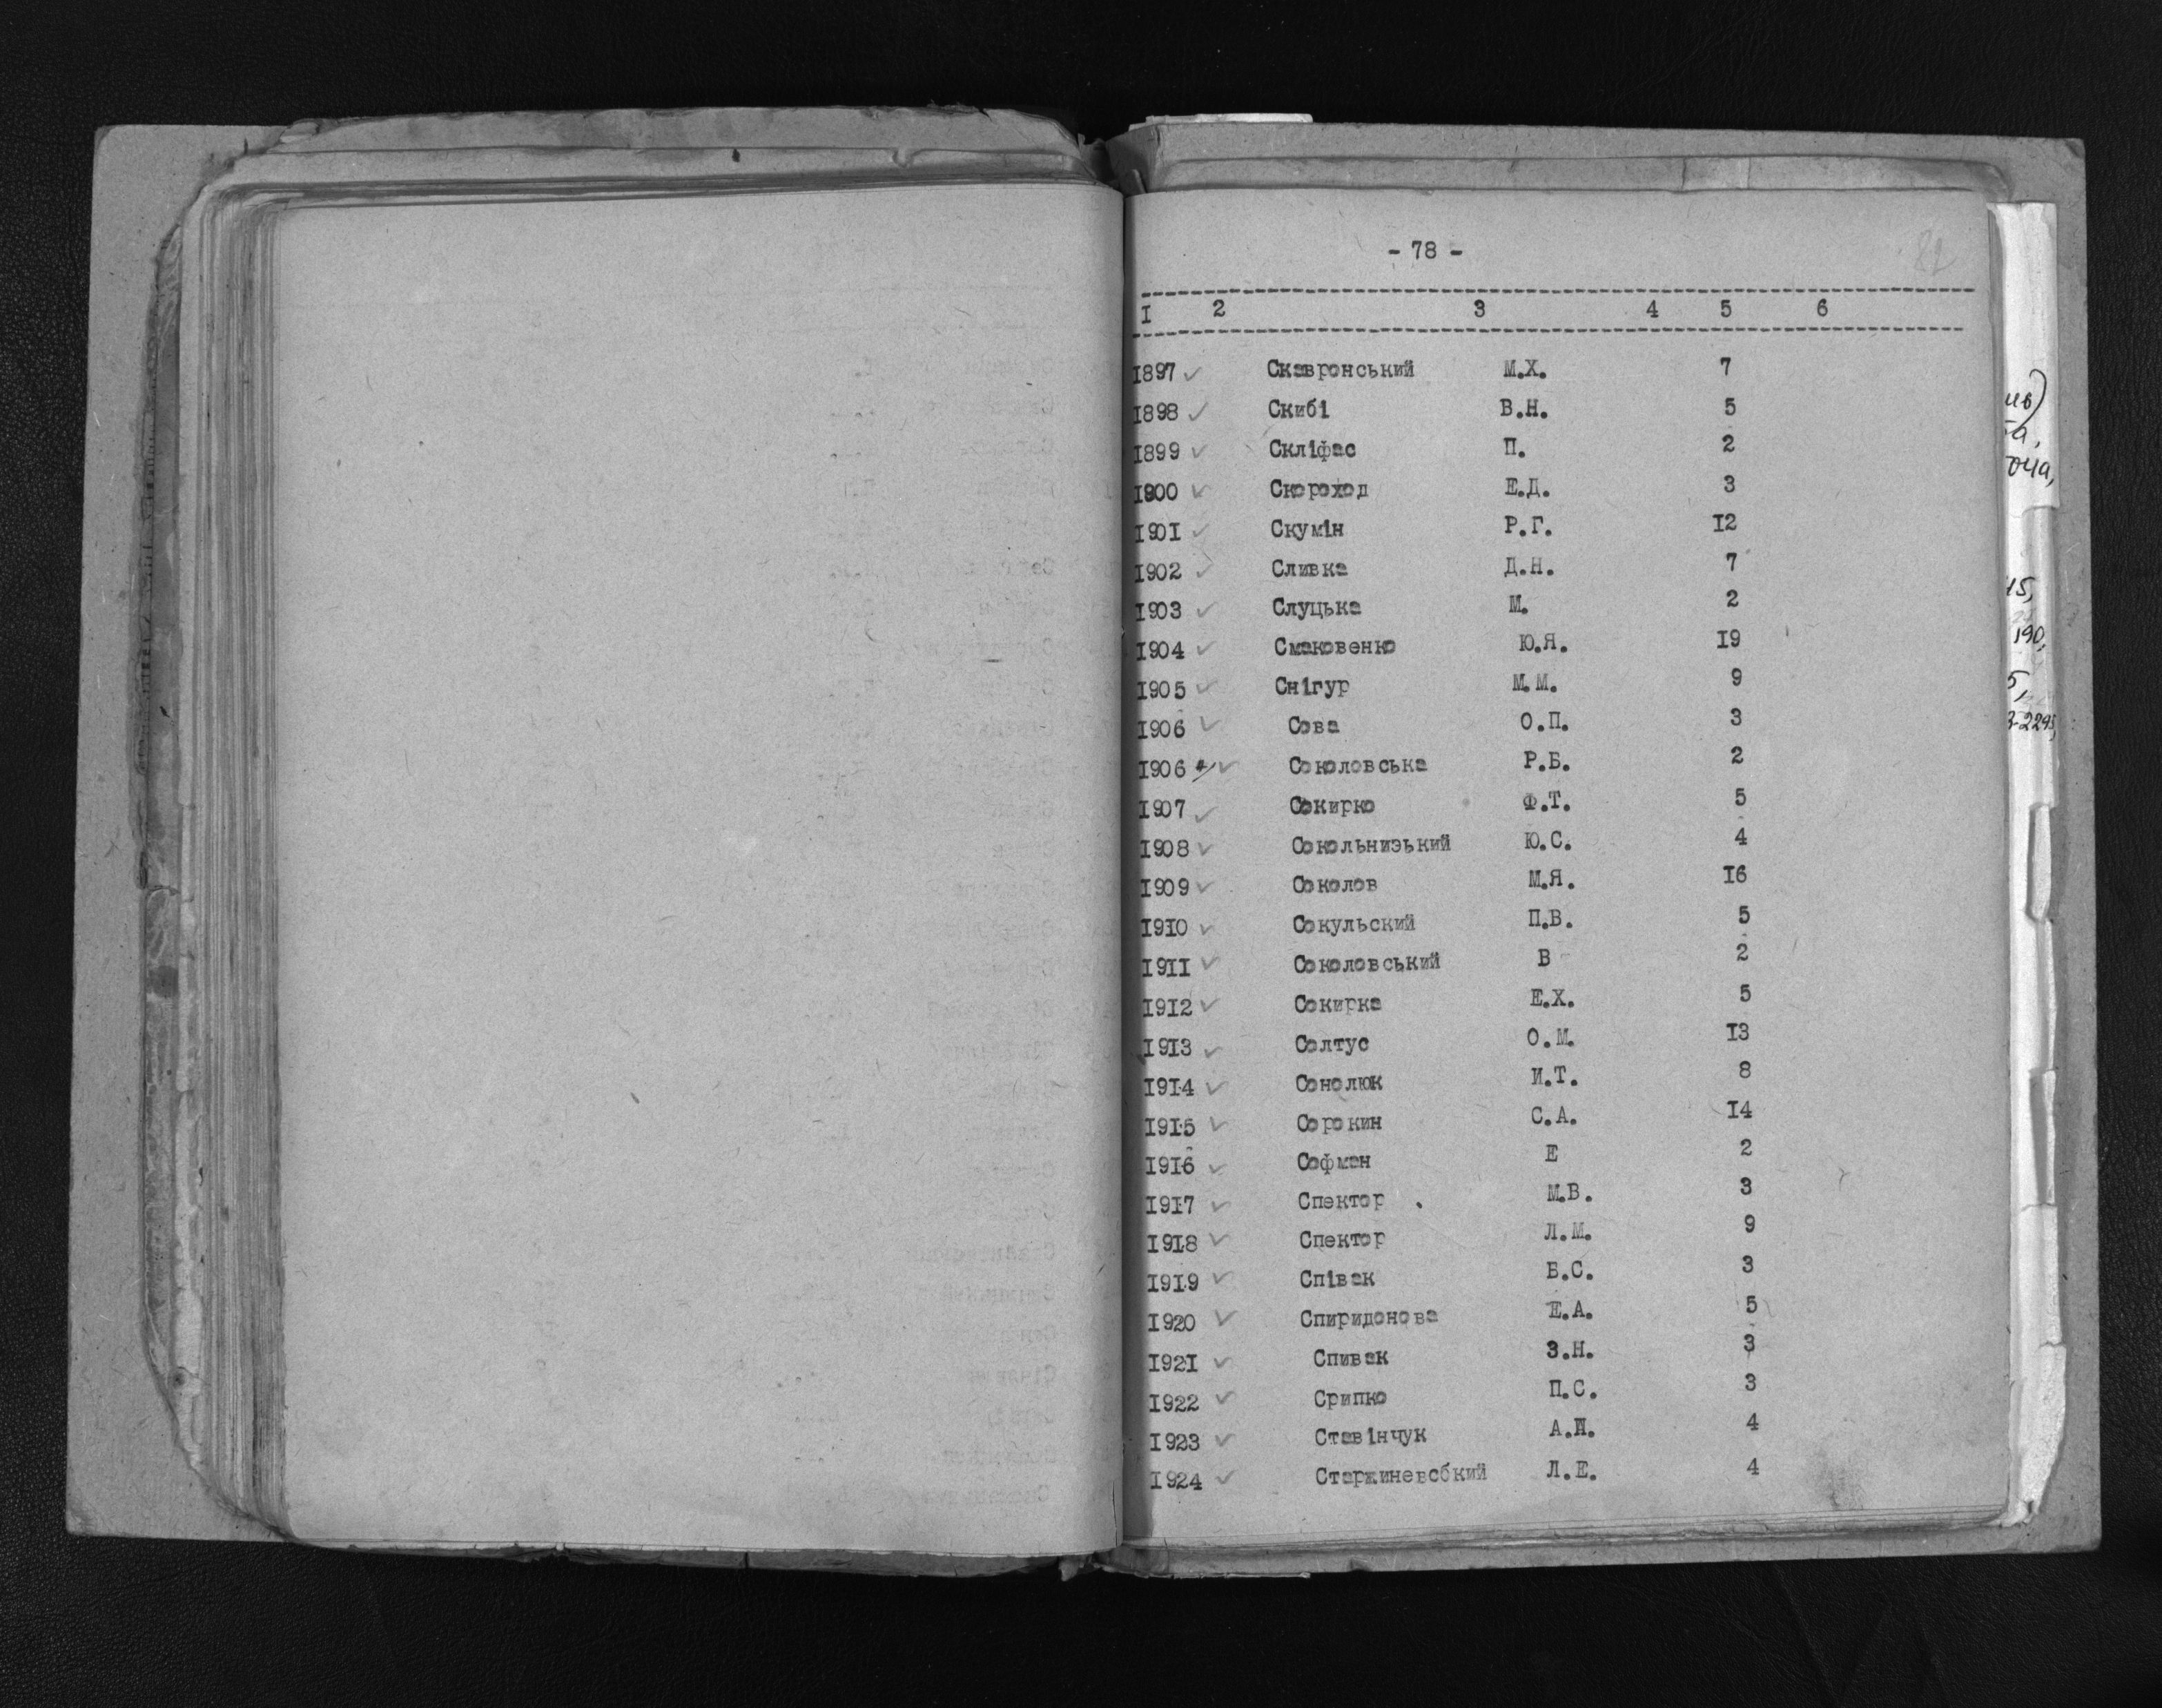 - 78 -
82
I 2 3 4 5 6
I897 Скавронський М.Х. 7
I898 Скибі В.Н. 5
I899 Скліфас П. 2
I900 Скороход Е.Д. 3
I90I Скумін Р.Г. I2
I902 Сливка Д.Н. 7
I903 Слуцька М. 2
I904 Смаковенко Ю.Я. I9
I905 Снігур М.М. 9
I906 Сова О.П. 3
I906 Соколовська Р.Б. 2
I907 Сокирко Ф.Т. 5
I908 Сокольнизький Ю.С. 4
I909 Соколов М.Я. I6
I9I0 Сокульский П.В. 5
I9II Соколовський В 2
I9I2 Сокирка Е.Х. 5
I9I3 Солтус О.М. I3
I9I4 Сонолюк И.Т. 8
I9I5 Сорокин С.А. I4
I9I6 Софман Е 2
I9I7 Спектор . М.В. 3
I9I8 Спектор Л.М. 9
I9I9 Співак Б.С. 3
I920 Спиридонова Е.А. 5
I92I Спивак З.Н. 3
I922 Срипко П.С. 3
I923 Ставінчук А.Й. 4
I924 Старжиневсбкий Л.Е. 4
190,